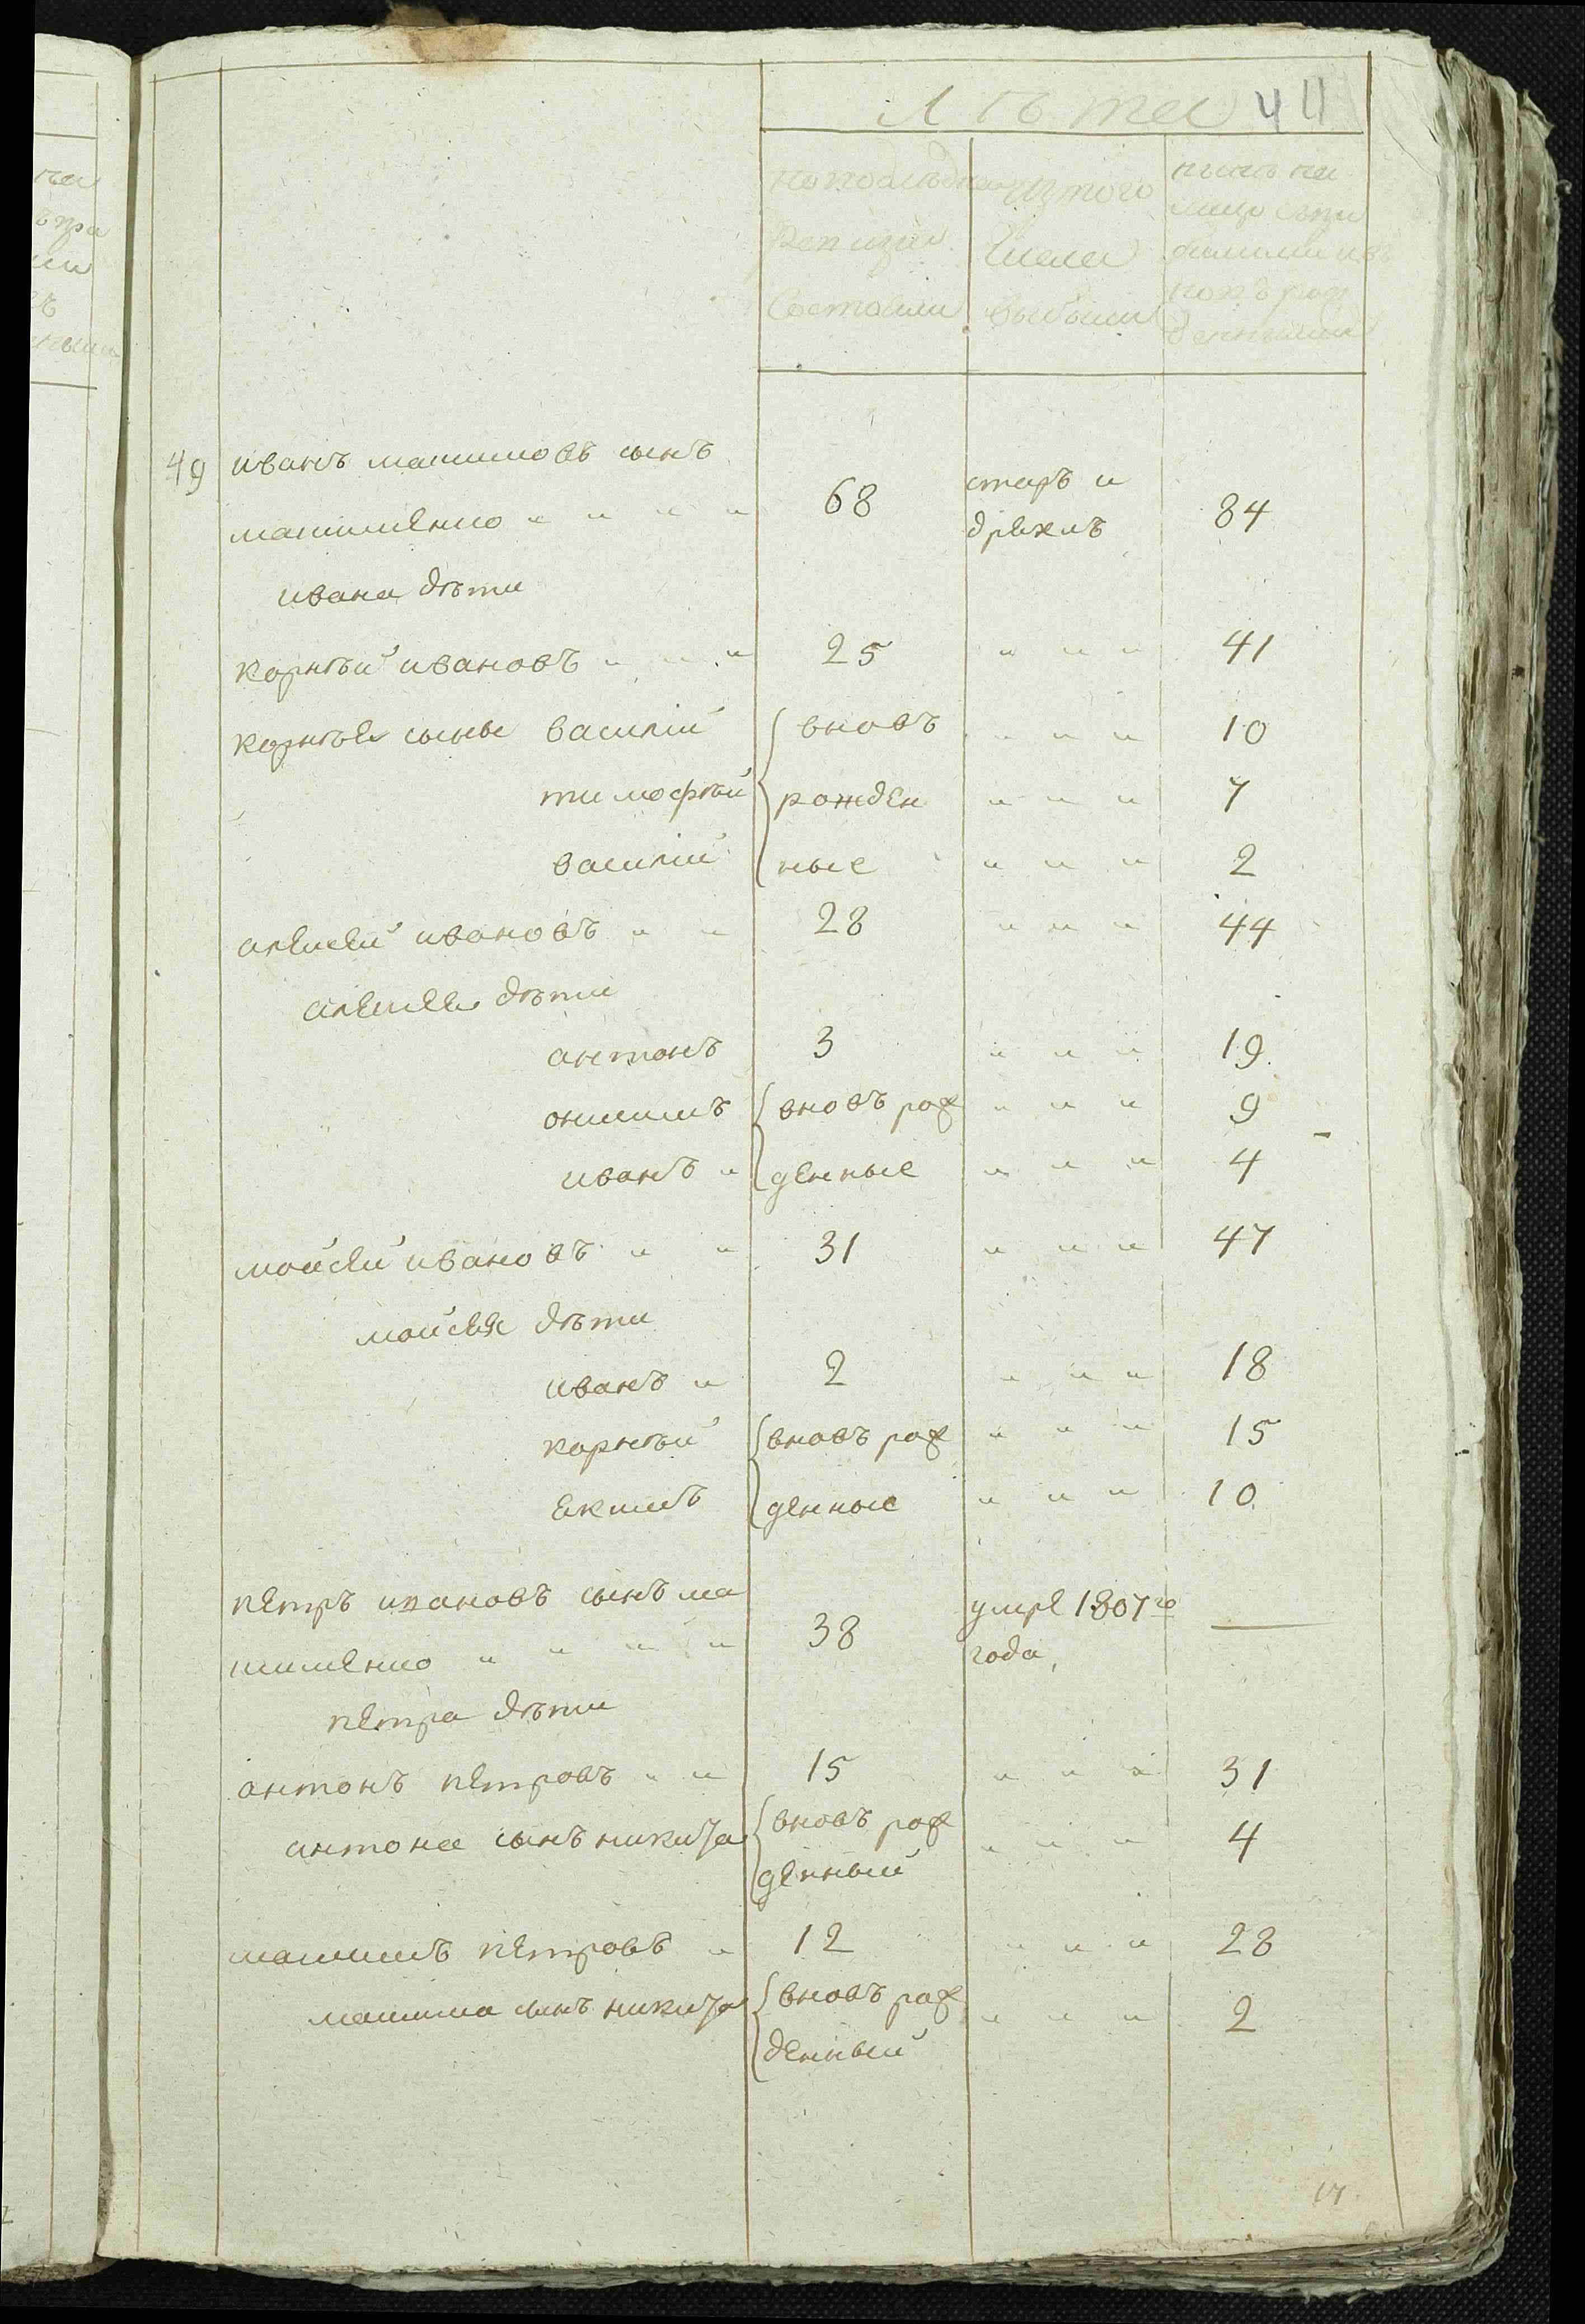 Лѣта 44
по последней изтого ныне на
Ревизии числа лицо съпри
состояли выбыли былыми изъ
новъ рож
денными
49 иванъ максимовъ сынъ
максименко " " " " 68 старъ и дряхлъ 84
ивана дѣти
корнѣй ивановъ " " " 25 " " " 41
корнѣя сыны василий вновъ " " " 10
тимофѣй рожден " " " 7
василий ные " " " 2
алексей ивановъ " " 28 " " " 44
алексея дѣти
антонъ 3 " " " 19
онисимъ вновъ рож " " " 9
иванъ " денные " " " 4
мойсей ивановъ " " 31 " " " 47
мойсея дѣти
иванъ " 2 " " " 18
корнѣй вновъ рож " " " 15
екимъ денные " " " 10
петръ ивановъ сынъ ма
ксименко " " " " 38 умре 1807го года, —
петра дѣти
антонъ петровъ " " 15 " " " 31
антона сынъ никита вновъ рож " " " 4
денный
максимъ петровъ " 12 " " " 28
максима сынъ никита вновъ рож " " " 2
денный
17